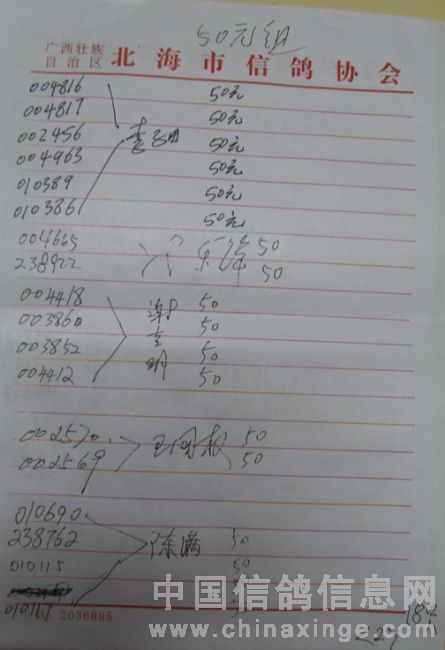 50元组
广西壮族
自治区
北海市信鸽协会
004816 50元
004817 50元
002456 50元
004963 50元
010389 50元
010386 50元
004665 50
238922 50
004418 谢 50
003860 50
003852 明 50
004412 50
002570 50
002569 50
010690
238762 陈满 50
010115 50
010117
2036885
中国信鸽信息网
www.chinaxinge.com